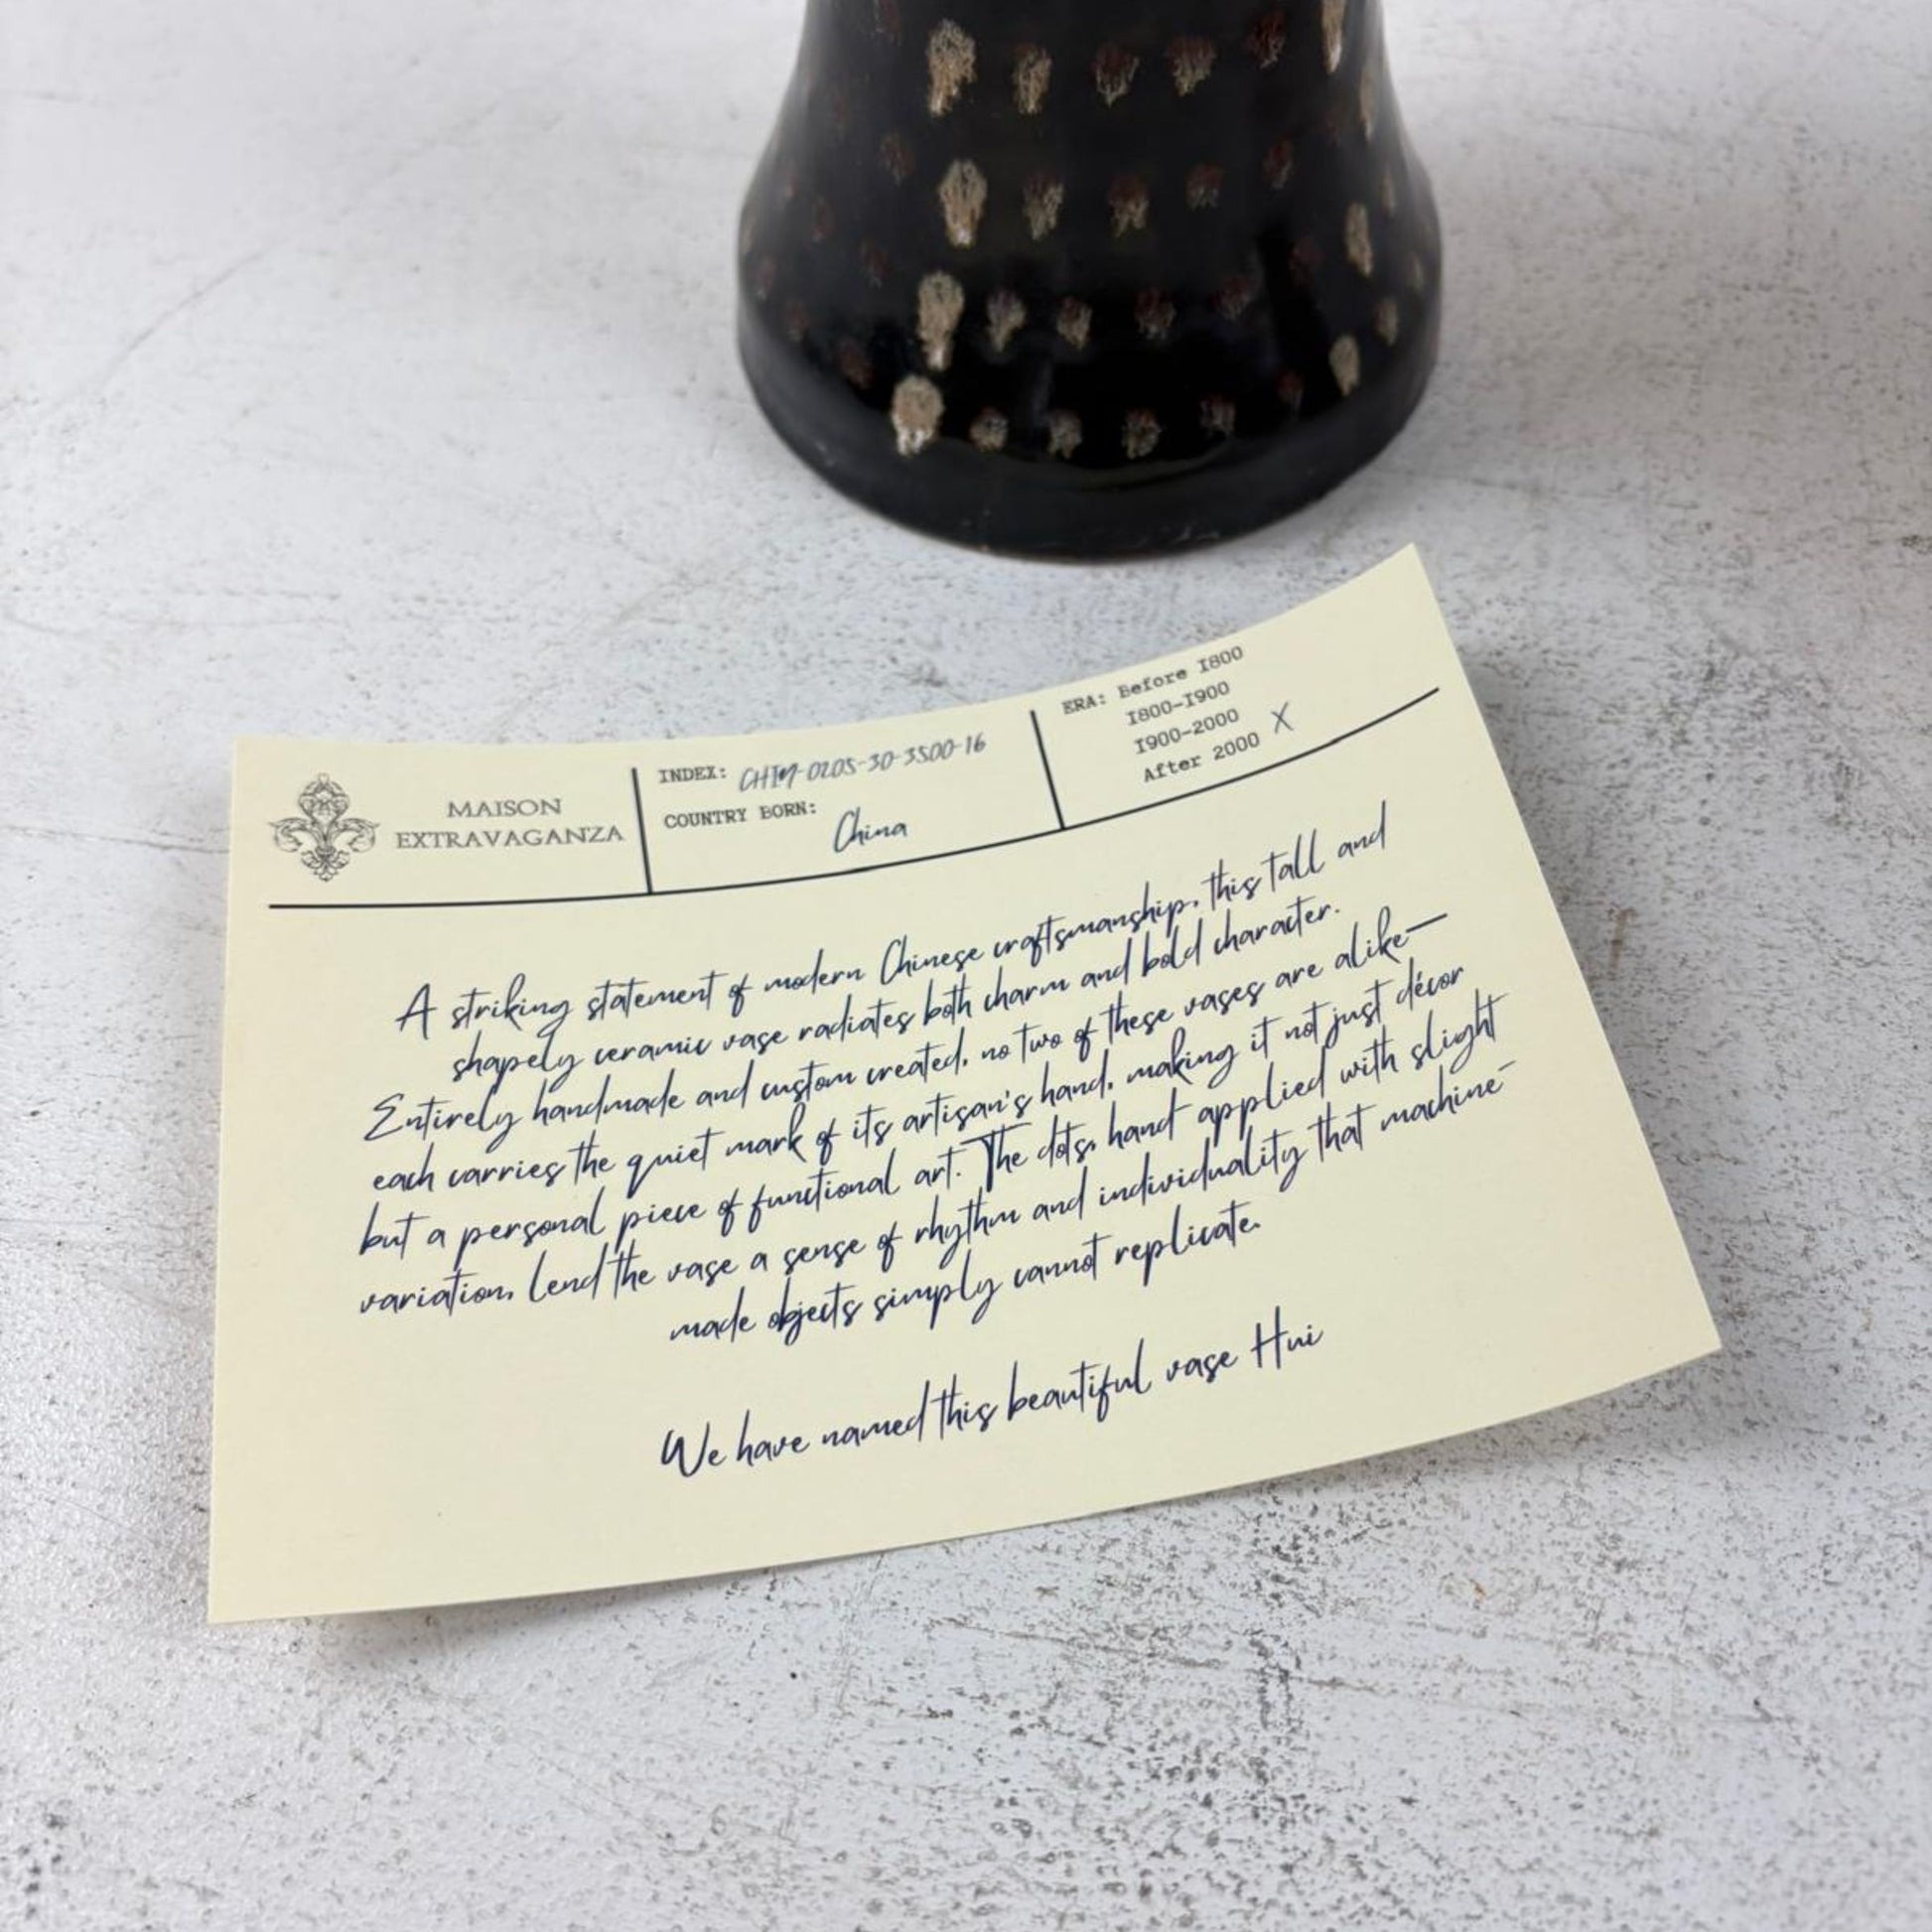 MAISON
EXTRAVAGANZA
INDEX: CHIN-0205-30-3500-16
COUNTRY BORN:
China
ERA: Before 1800
1800-1900
1900-2000
After 2000 X
A striking statement of modern Chinese craftsmanship, this tall and
shapely ceramic vase radiates both charm and bold character.
Entirely handmade and custom created, no two of these vases are alike—
each carries the quiet mark of its artisan's hand, making it not just décor
but a personal piece of functional art. The dots, hand applied with slight
variation, lend the vase a sense of rhythm and individuality that machine-
made objects simply cannot replicate.
We have named this beautiful vase Hui